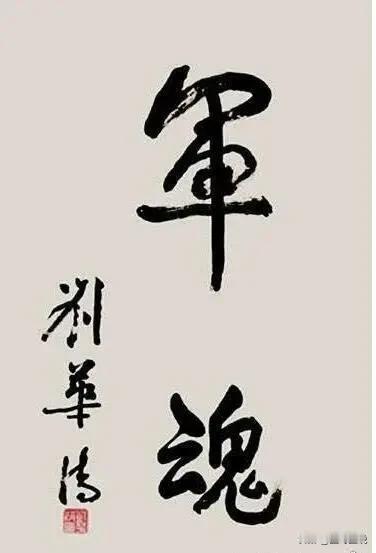 軍魂
劉華清